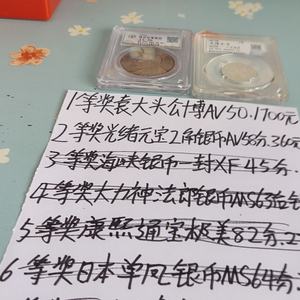 1等奖袁大头公博AV50.1700元
2等奖光绪元宝2角银币AV58分.360元
3等奖海峡银币一封XF45分.
4等奖大力神法郎银币MS63
5等奖康熙通宝极美82分.2
6等奖日本单凤银币MS64分.